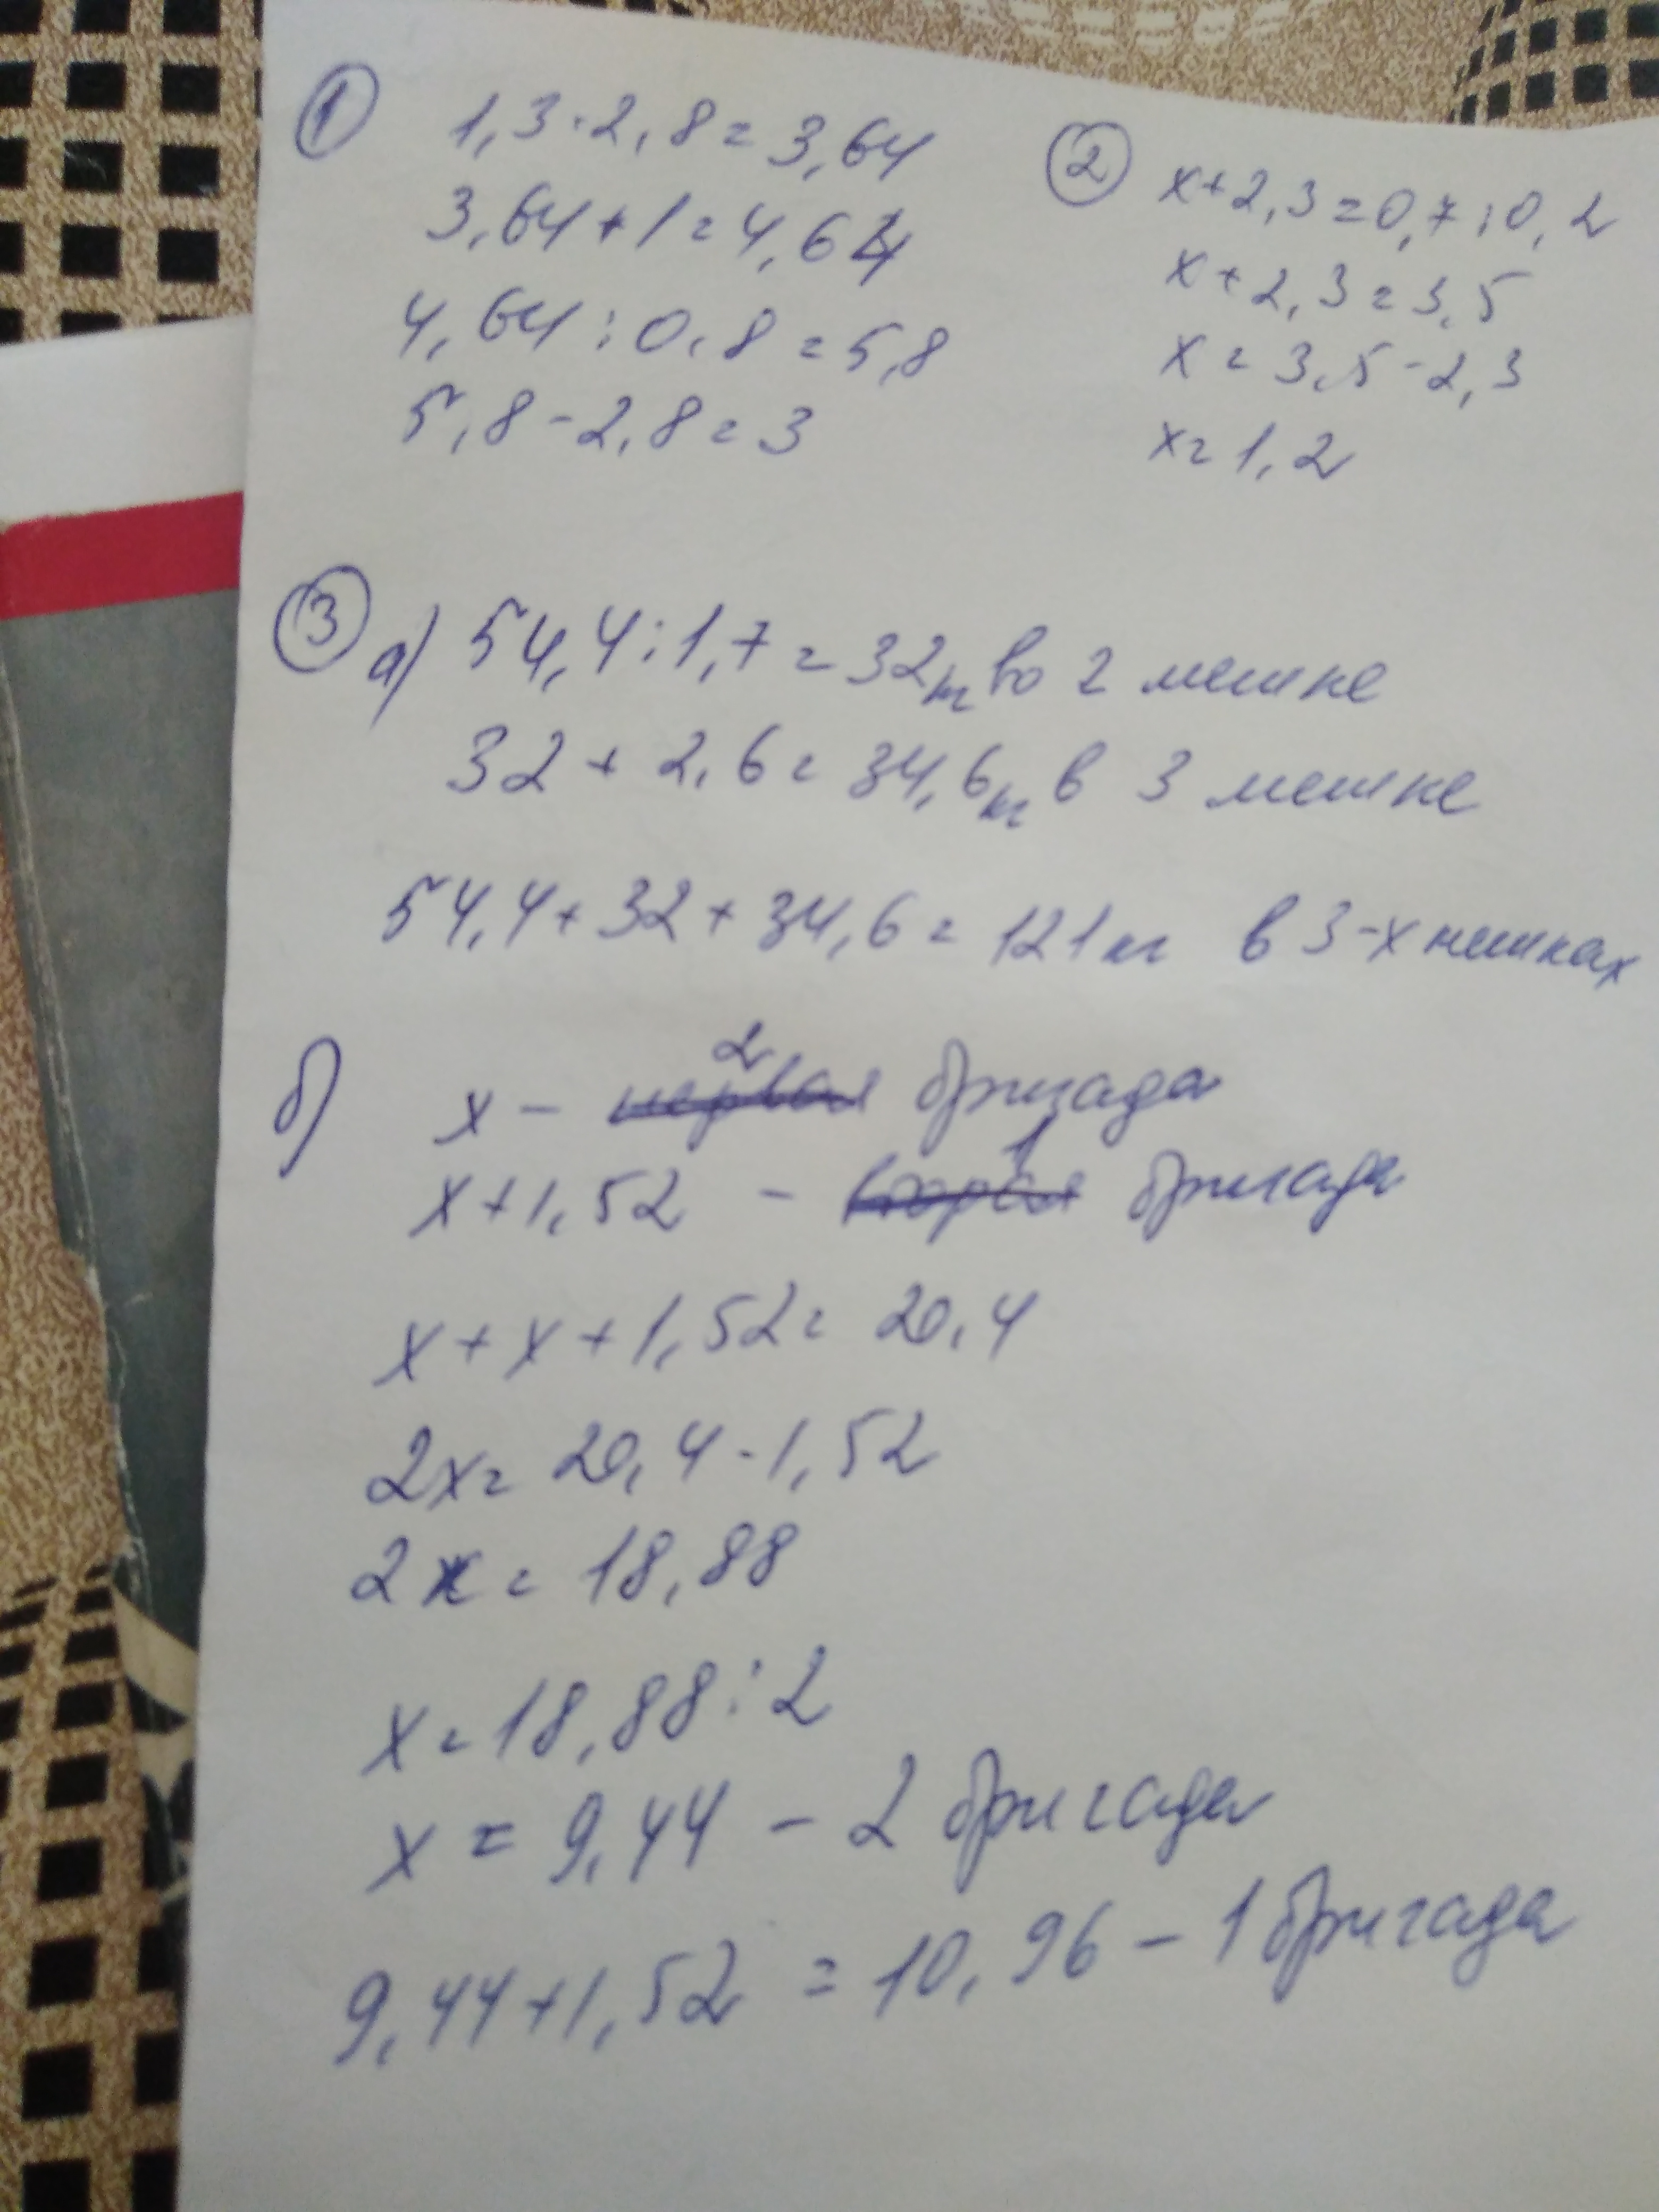 1
1,3·2,8=3,64
3,64+1=4,64
4,64:0,8=5,8
5,8-2,8=3
2
x+2,3=0,7:0,2
x+2,3=3,5
x=3,5-2,3
x=1,2
3
а) 54,4:1,7=32кг во 2 мешке
32+2,6=34,6кг в 3 мешке
54,4+32+34,6=121кг в 3-х мешках
б) x - первая 2 бригада
x+1,52 - вторая 1 бригада
x+x+1,52=20,4
2x=20,4-1,52
2x=18,88
x=18,88:2
x=9,44 - 2 бригада
9,44+1,52=10,96 - 1 бригада